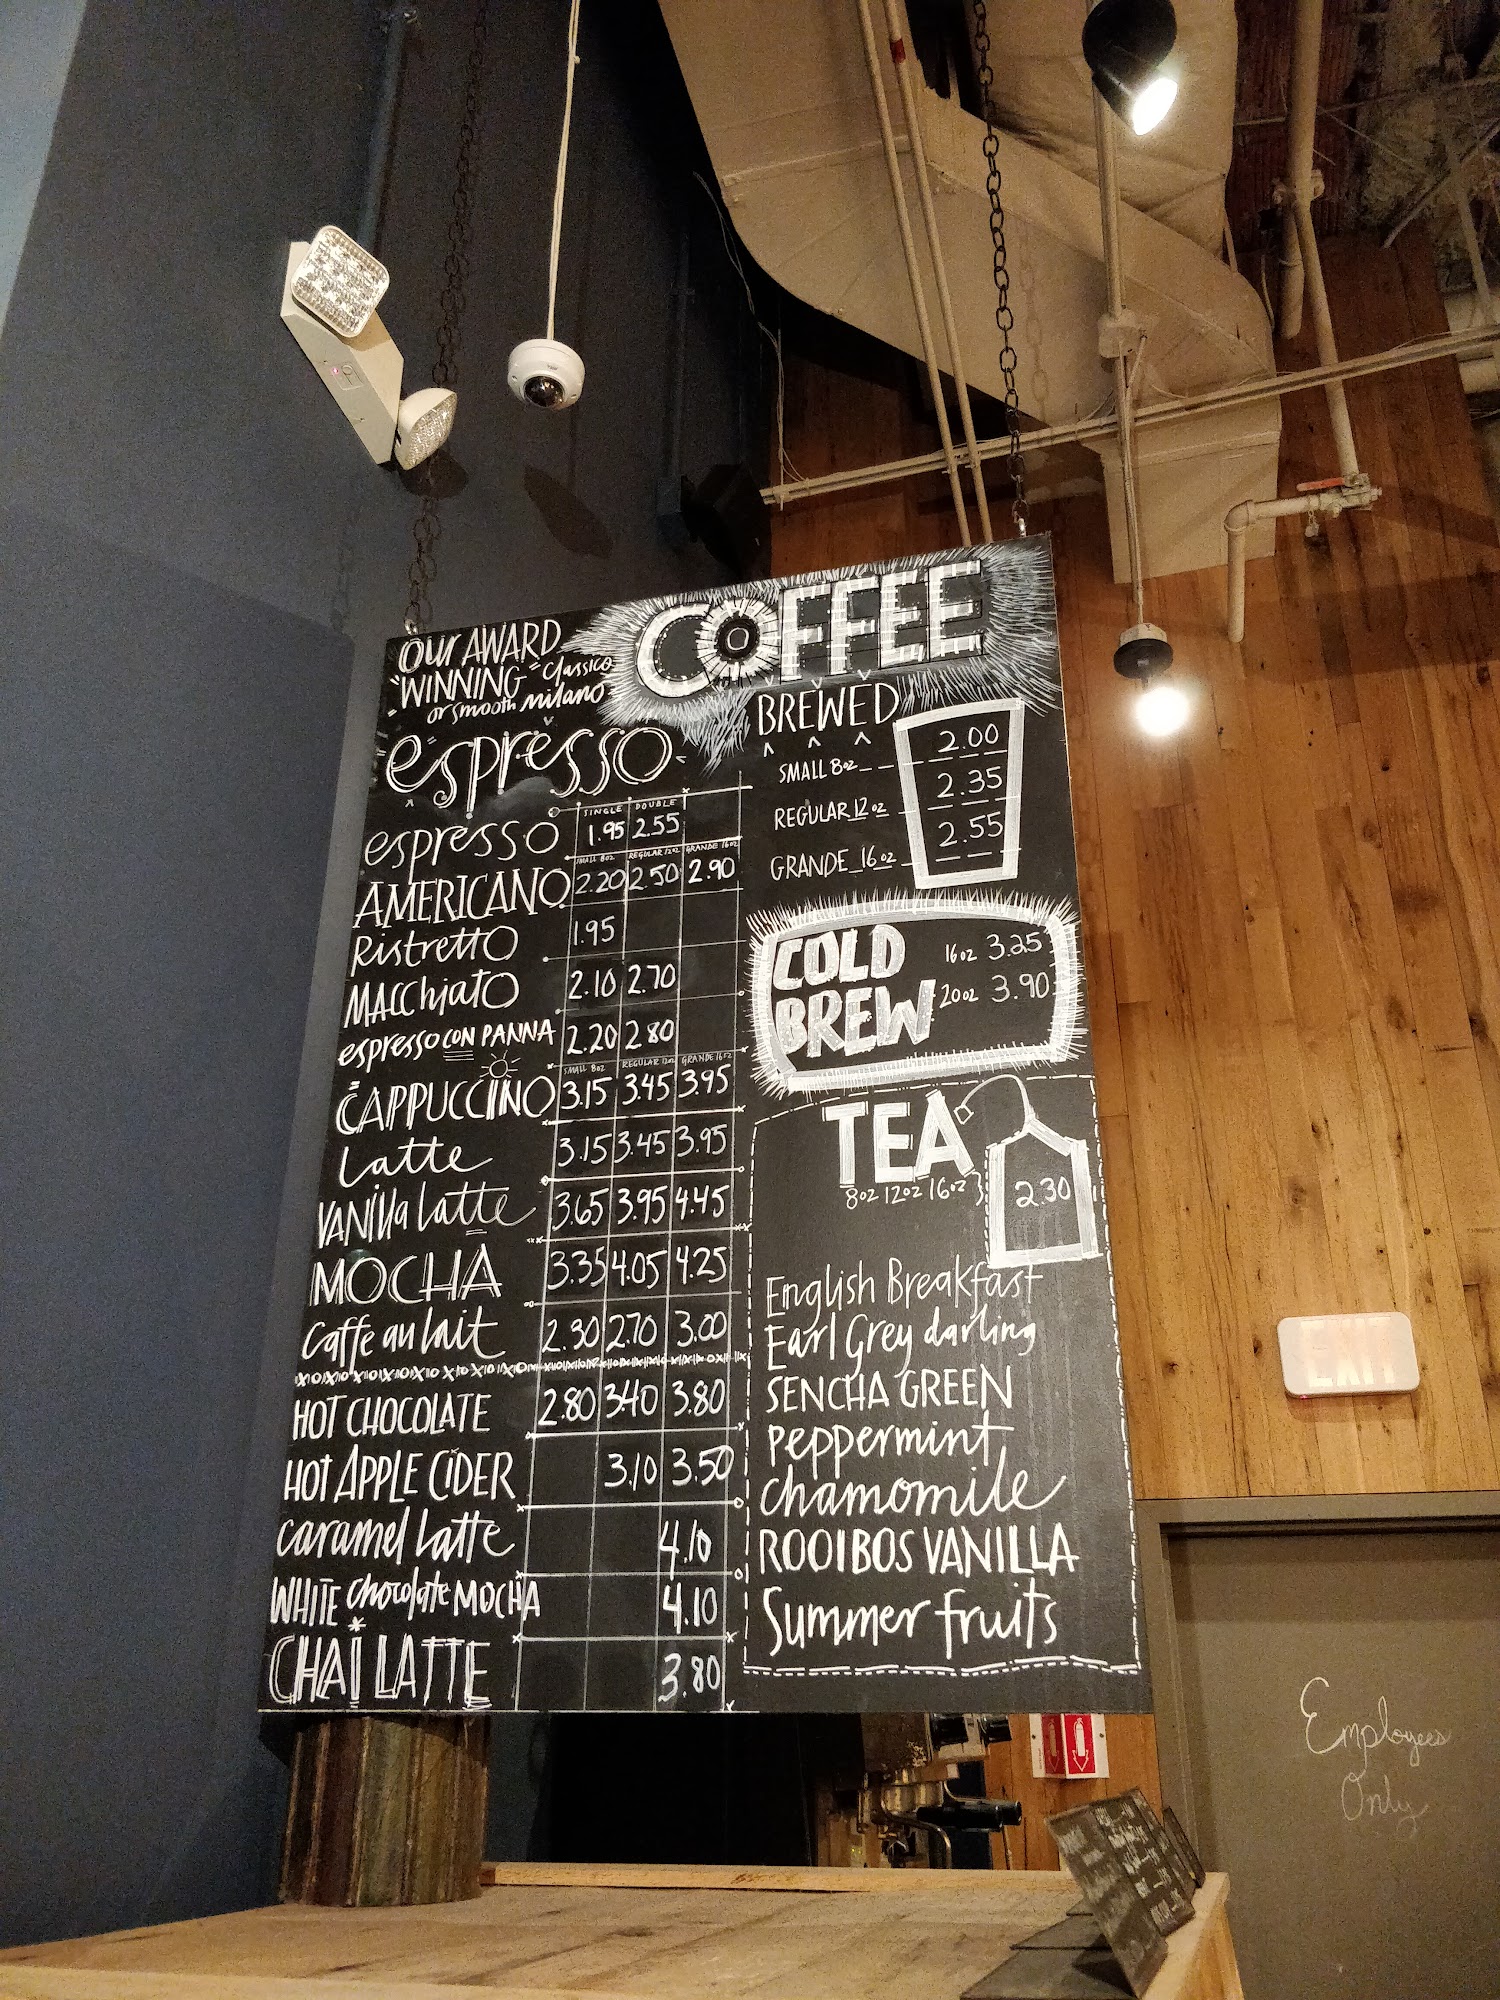 OUR AWARD
WINNING "Classico"
or smooth milano
espresso
SINGLE DOUBLE
espresso 1.95 2.55
SMALL 8oz REGULAR 12oz GRANDE 16oz
AMERICANO 2.20 2.50 2.90
Ristretto 1.95
MACChiatO 2.10 2.70
espresso CON PANNA 2.20 2.80
SMALL 8oz REGULAR 12oz GRANDE 16oz
CAPPUCCINO 3.15 3.45 3.95
Latte 3.15 3.45 3.95
VANilla Latte 3.65 3.95 4.45
MOCHA 3.35 4.05 4.25
Caffe au lait 2.30 2.70 3.00
HOT CHOCOLATE 2.80 3.40 3.80
HOT APPLE CiDER 3.10 3.50
Caramel Latte 4.10
WHITE chocolate MOCHA 4.10
CHAI LATTE 3.80
COFFEE
BREWED
SMALL 8oz 2.00
REGULAR 12oz 2.35
GRANDE 16oz 2.55
COLD
BREW
16oz 3.25
20oz 3.90
TEA
8oz 12oz 16oz } 2.30
English Breakfast
Earl Grey darling
SENCHA GREEN
peppermint
chamomile
ROOIBOS VANILLA
Summer fruits
EXIT
Employees
Only